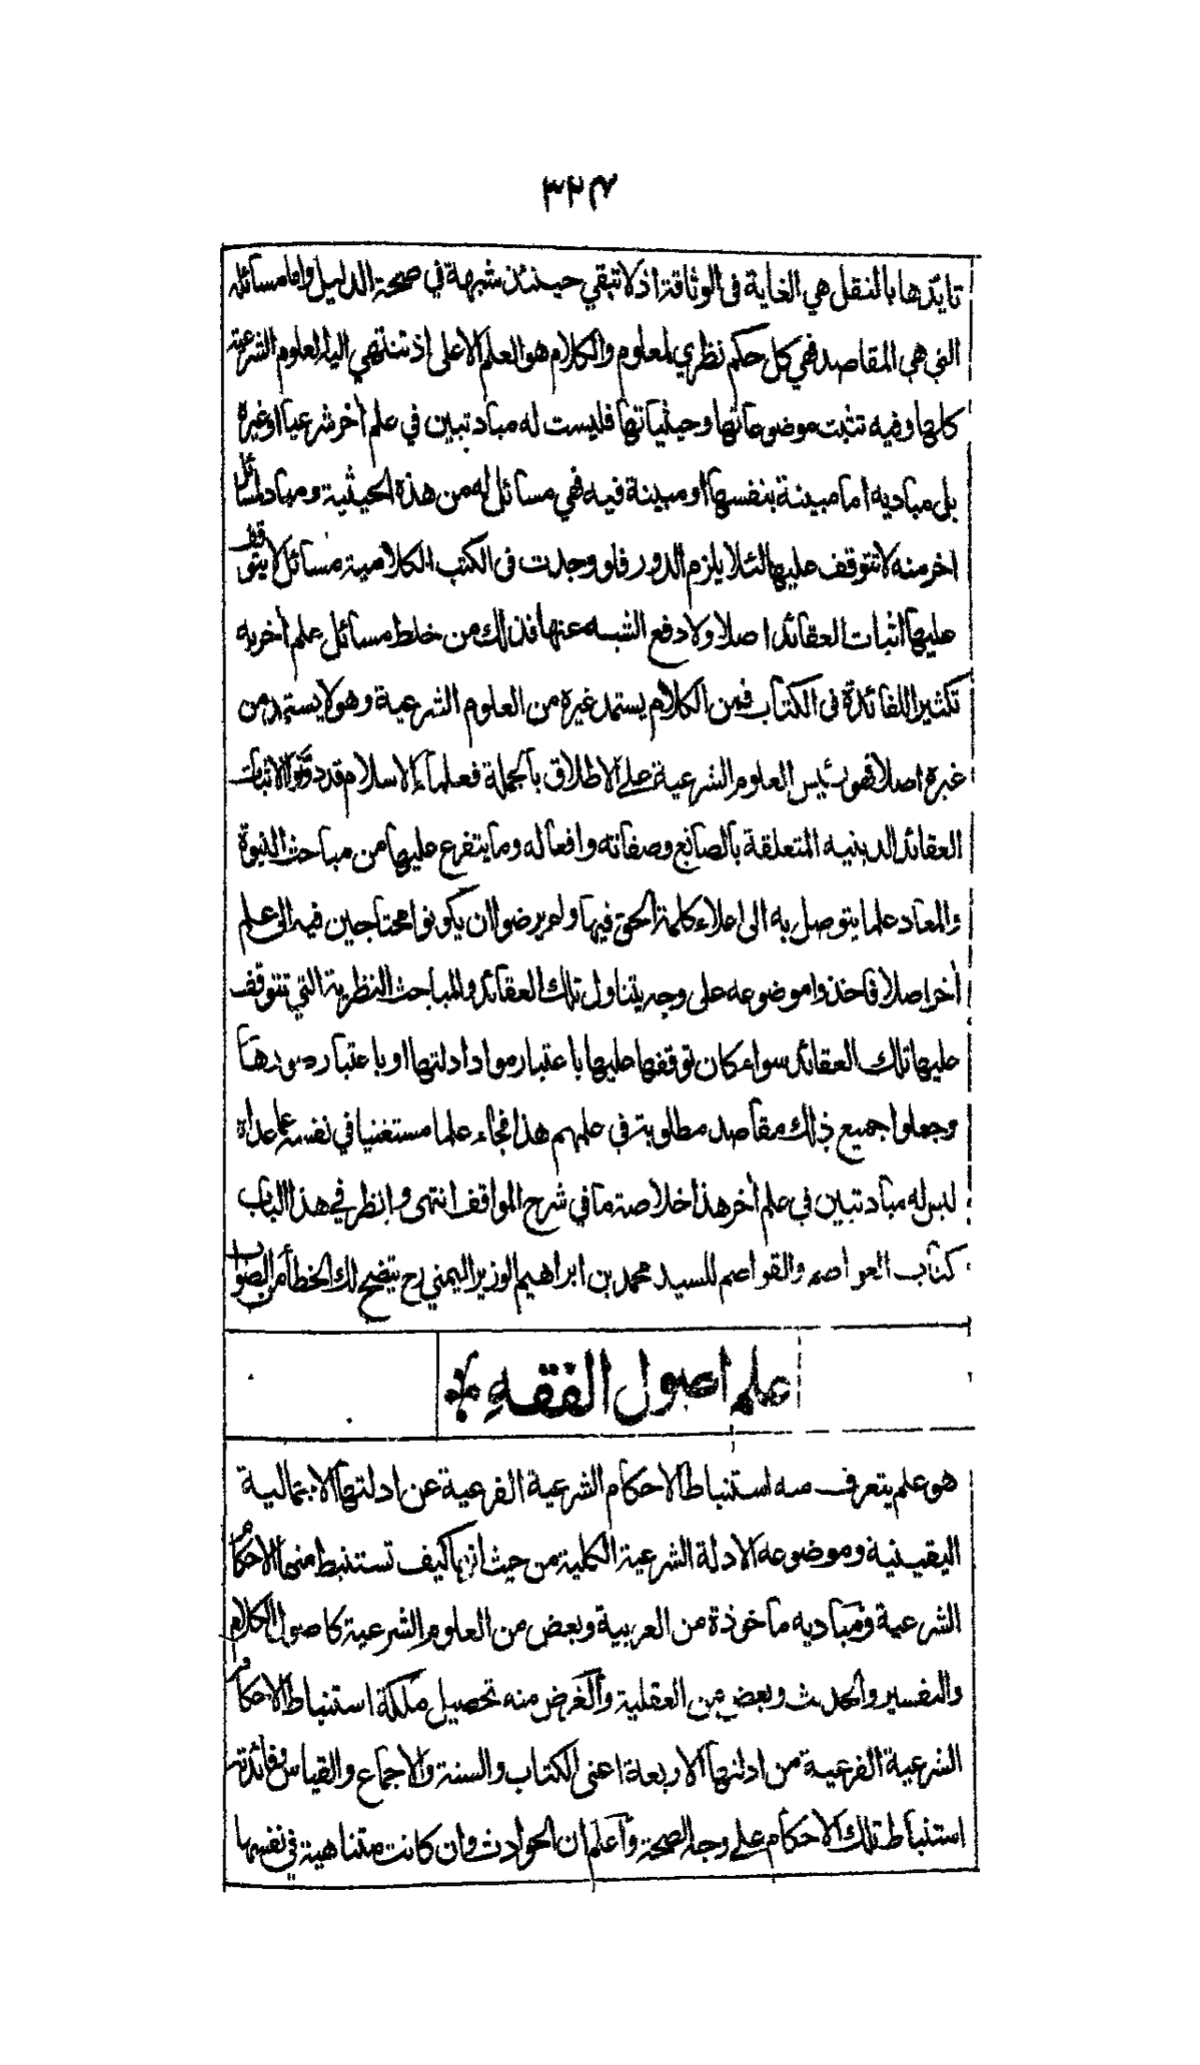 ٣٢٤
تايدها بالنقل هي الغاية فى الوثاقة اذ لا تبقي حينئذ شبهة في صحة الدليل واما مسائله
التي هي المقاصد فهي كل حكم نظري لمعلوم والكلام هو العلم الاعلى اذ تنتهي اليه العلوم الشرعية
كلها وفيه تثبت موضوعاتها وحيثياتها فليست له مباد تبين في علم أخر شرعيا او غيره
بل مباديه اما مبينة بنفسها او مبينة فيه فهي مسائل له من هذه الحيثية ومباد لمسائل
اخر منه لا تتوقف عليها لئلا يلزم الدور فلو وجدت فى الكتب الكلامية مسائل لا يتوقف
عليها اثبات العقائد اصلا ولا دفع الشبه عنها فذلك من خلط مسائل علم أخر به
تكثيرا للفائدة فى الكتاب فمن الكلام يستمد غيره من العلوم الشرعية وهو لا يستمد من
غيره اصلا فهو رئيس العلوم الشرعية على الاطلاق بالجملة فعلماء الاسلام قد دونوا لاثبات
العقائد الدينيه المتعلقة بالصانع وصفاته وافعاله وما يتفرع عليها من مباحث النبوة
والمعاد علما يتوصل به الى اعلاء كلمة الحق فيها ولم يرضوا ان يكونوا محتاجين فيه الى علم
أخر اصلا فاخذوا موضوعه على وجه يتناول تلك العقائد والمباحث النظرية التي تتوقف
عليها تلك العقائد سواء كان توقفها عليها باعتبار مواد ادلتها او باعتبار صورها
وجعلوا جميع ذلك مقاصد مطلوبة في علمهم هذا فجاء علما مستغنيا في نفسه عما عداه
ليس له مباد تبين في علم أخر هذا خلاصة ما في شرح المواقف انتهى وانظر في هذا الباب
كتاب العواصم والقواصم للسيد محمد بن ابراهيم الوزير اليمني رح يتضح لك الخطأ من الصواب
علم اصول الفقه
هو علم يتعرف منه استنباط الاحكام الشرعية الفرعية عن ادلتها الاجمالية
اليقينية وموضوعه الادلة الشرعية الكلية من حيث انها كيف تستنبط منها الاحكام
الشرعية ومباديه ماخوذة من العربية وبعض من العلوم الشرعية كاصول الكلام
والتفسير والحديث وبعض من العقلية والغرض منه تحصيل ملكة استنباط الاحكام
الشرعية الفرعية من ادلتها الاربعة اعنى الكتاب والسنة والاجماع والقياس وفائدته
استنباط تلك الاحكام على وجه الصحة واعلم ان الحوادث وان كانت متناهية في نفسها